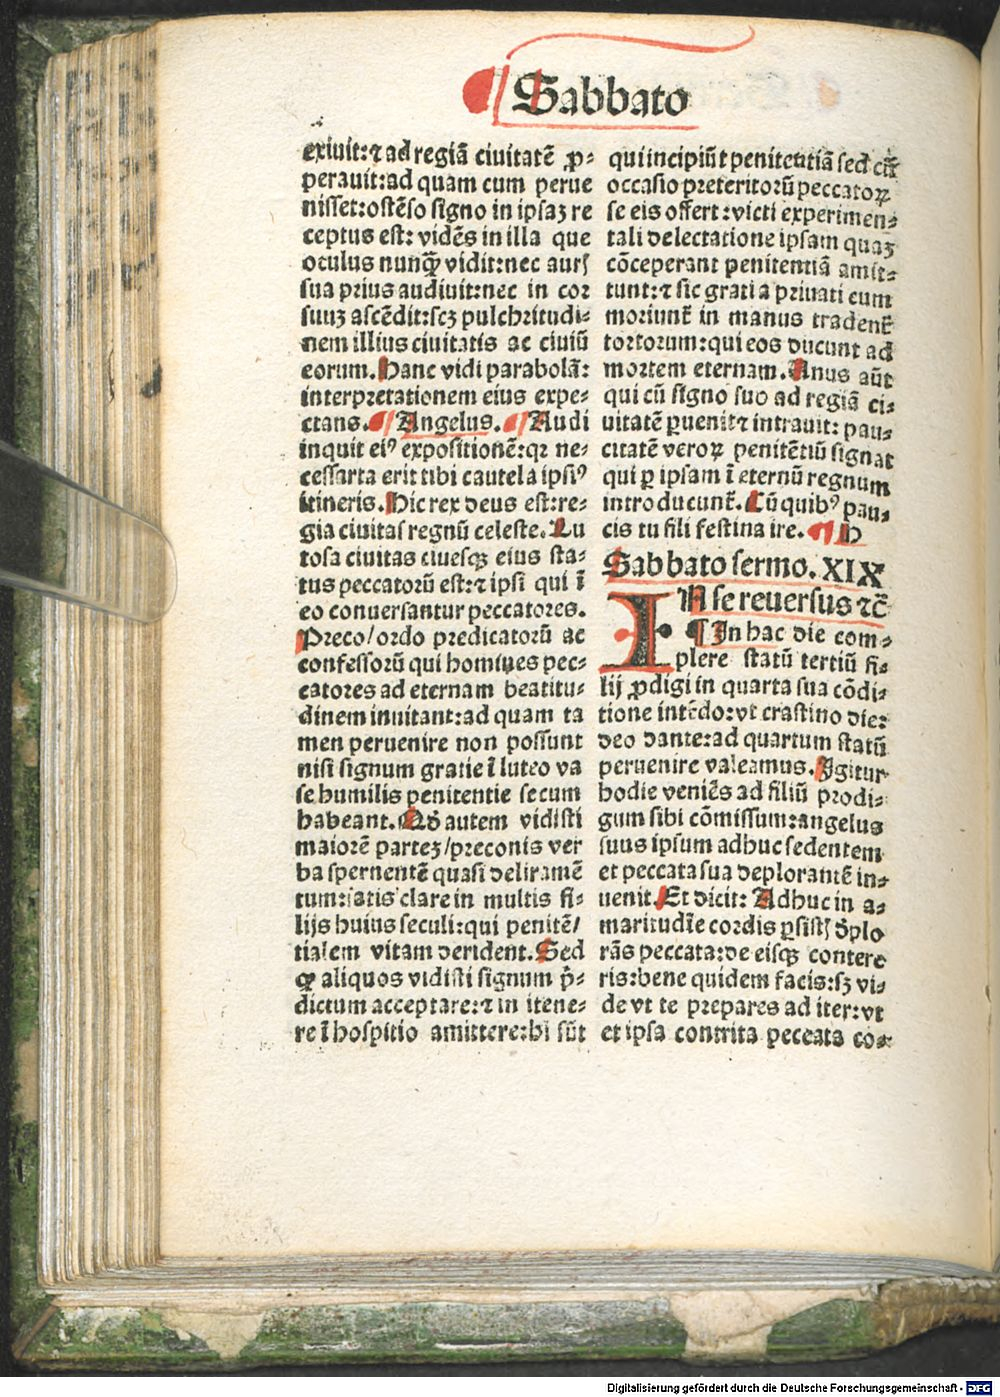 Sabbato
exiuit:⁊ ad regiã ciuitatẽ ꝓ⸗
perauit:ad quam cum perue
nisset:ostẽso signo in ipsaꝫ re
ceptus est: vidẽs in illa que
oculus nunꝙ̃ vidit:nec aur
sua prius audiuit:nec in cor
suuꝫ ascẽdit:scꝫ pulchritudi⸗
nem illius ciuitatis ac ciuiũ
eorum. Hanc vidi parabolã:
interpretationem eius expe⸗
ctans. ¶ Angelus. ¶ Audi
inquit eiꝰ expositionẽ:qꝛ ne⸗
cessaria erit tibi cautela ipsiꝰ
itineris. Hic rex deus est:re⸗
gia ciuitas regnũ celeste. Lu
tosa ciuitas ciuesqꝫ eius sta⸗
tus peccatorũ est:⁊ ipsi qui ĩ
eo conuersantur peccatores.
Preco/ordo predicatorũ ac
confessorũ qui homines pec⸗
catores ad eternam beatitu⸗
dinem inuitant:ad quam ta
men peruenire non possunt
nisi signum gratie ĩ luteo va
se humilis penitentie secum
habeant. Qð autem vidisti
maiorẽ parteꝫ/preconis ver
ba spernentẽ quasi deliramẽ
tum:satis clare in multis fi⸗
lijs huius seculi:qui penitẽ/
tialem vitam derident. Sed
ꝙ aliquos vidisti signum p̃⸗
dictum acceptare:⁊ in itene⸗
re ĩ hospitio amittere:hi sũt
qui incipiũt penitentiã sed cũ
occasio preteritorũ peccatoꝝ
se eis offert:victi experimen⸗
tali delectatione ipsam quaꝫ
cõceperant penitentiã amit⸗
tunt:⁊ sic gratia priuati cum
moriunt᷑ in manus tradent᷑
tortorum:qui eos ducunt ad
mortem eternam. Unus aũt
qui cũ signo suo ad regiã ci⸗
uitatẽ ꝑuenit⁊ intrauit: pau⸗
citatẽ veroꝝ penitẽtiũ signat
qui ꝑ ipsam ĩ eternũ regnum
introducunt᷑. Cũ quibꝰ pau⸗
cis tu fili festina ire. ¶ H
Sabbato sermo. XIX
IN se reuersus ⁊c̃
¶ In hac die com⸗
plere statũ tertiũ fi⸗
lij ꝓdigi in quarta sua cõdi⸗
tione intẽdo:vt crastino die:
deo dante:ad quartum statũ
peruenire valeamus. Igitur
hodie veniẽs ad filiũ prodi⸗
gum sibi cõmissum:angelus
suus ipsum adhuc sedentem
et peccata sua deplorantẽ in⸗
uenit. Et dicit: Adhuc in a⸗
maritudĩe cordis ꝑsist dꝓlo
rãs peccata:de eisqꝫ contere
ris:bene quidem facis:sꝫ vi⸗
de vt te prepares ad iter:vt
et ipsa contrita peccata co⸗
Digitalisierung gefördert durch die Deutsche Forschungsgemeinschaft - DFG